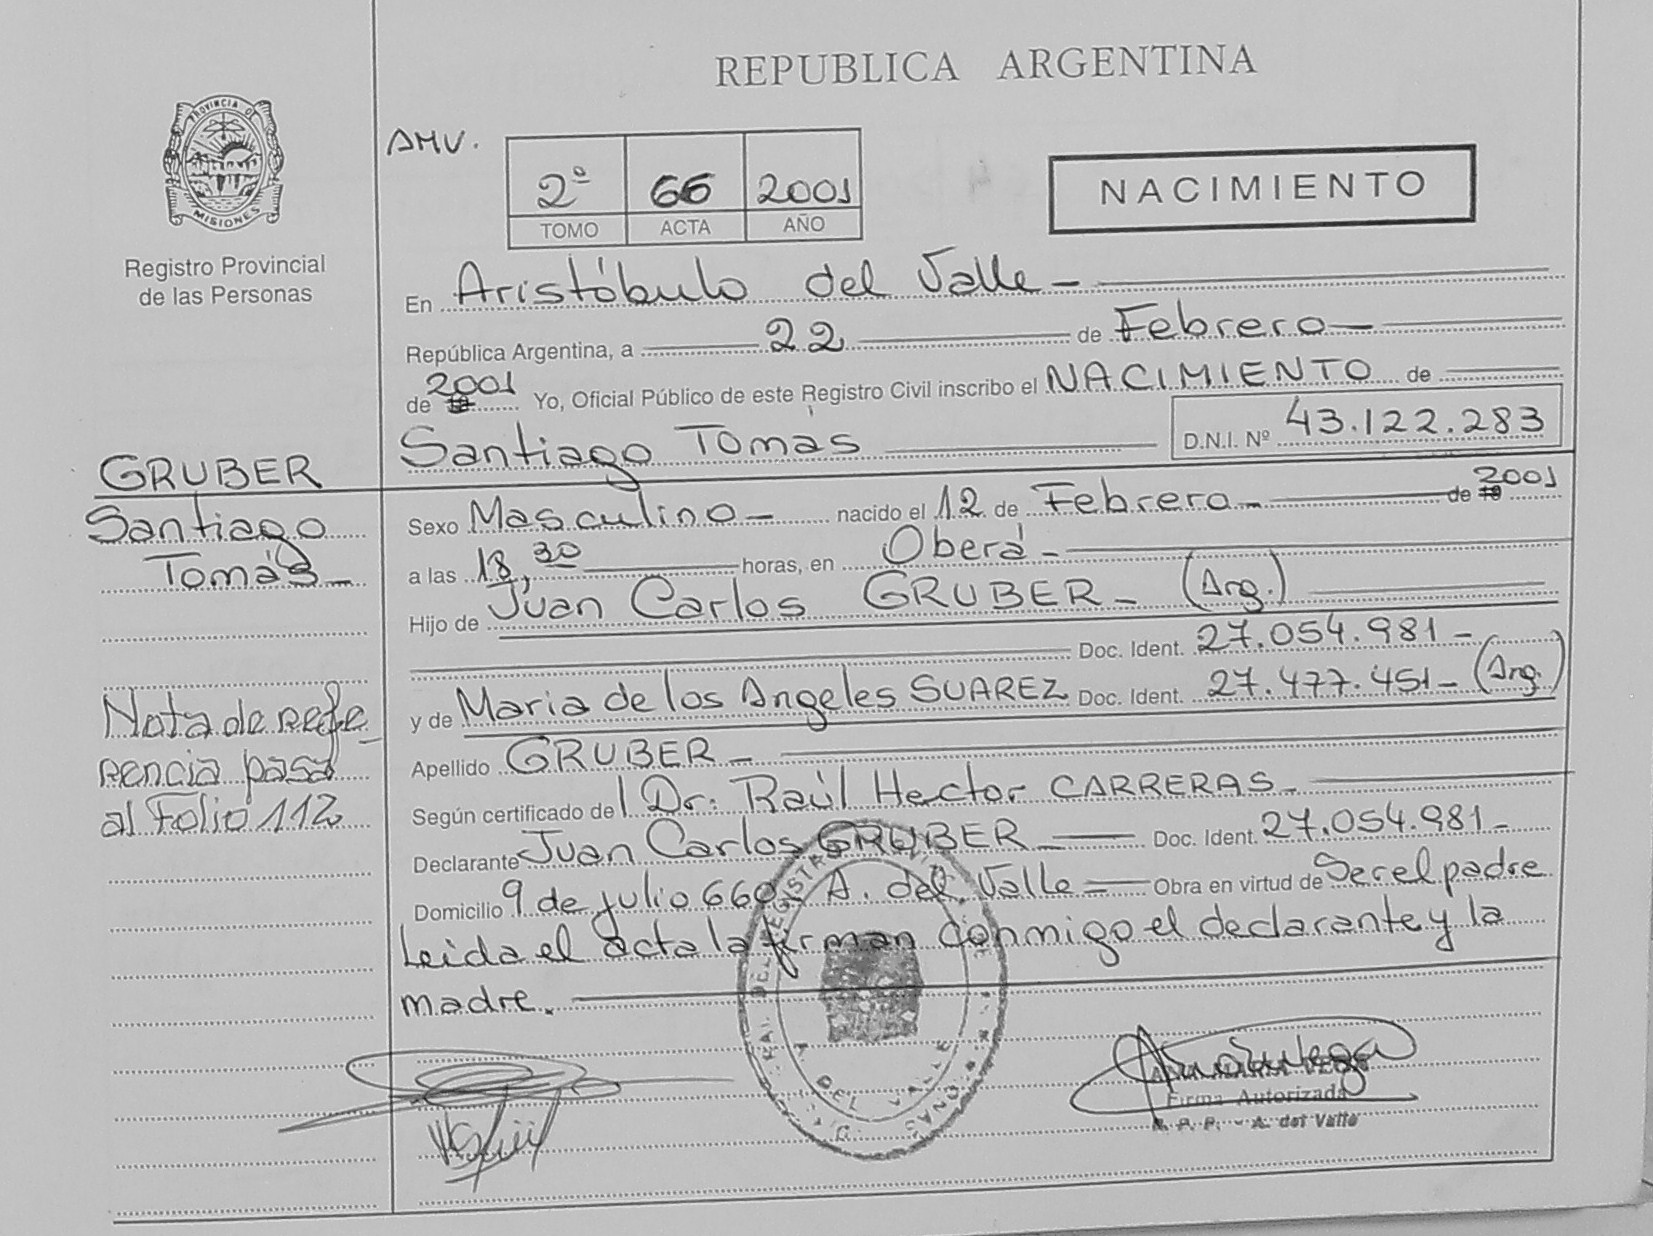 REPUBLICA ARGENTINA
PROVINCIA DE
MISIONES
Registro Provincial
de las Personas
AMV.
2º 66 2001
TOMO ACTA AÑO
NACIMIENTO
En Aristóbulo del Valle -
República Argentina, a 22 de Febrero -
de 2001 19 Yo, Oficial Público de este Registro Civil inscribo el NACIMIENTO de
Santiago Tomas D.N.I. Nº 43.122.283
GRUBER
Santiago
Tomás -
Sexo Masculino - nacido el 12 de Febrero - de 19 2001
a las 18,30 horas, en Oberá -
Hijo de Juan Carlos GRUBER - (Arg.)
Doc. Ident. 27.054.981 -
y de Maria de los Angeles SUAREZ Doc. Ident. 27.477.451 - (Arg.)
Apellido GRUBER -
Según certificado del Dr. Raúl Hector CARRERAS -
Declarante Juan Carlos GRUBER - Doc. Ident. 27.054.981 -
Domicilio 9 de julio 660 A. del Valle - Obra en virtud de Ser el padre
Leida el acta la firman conmigo el declarante y la
madre.
Nota de refe
rencia pasa
al Folio 112
DEL VALLE
Firma Autorizada
R. P. P. - A. del Valle